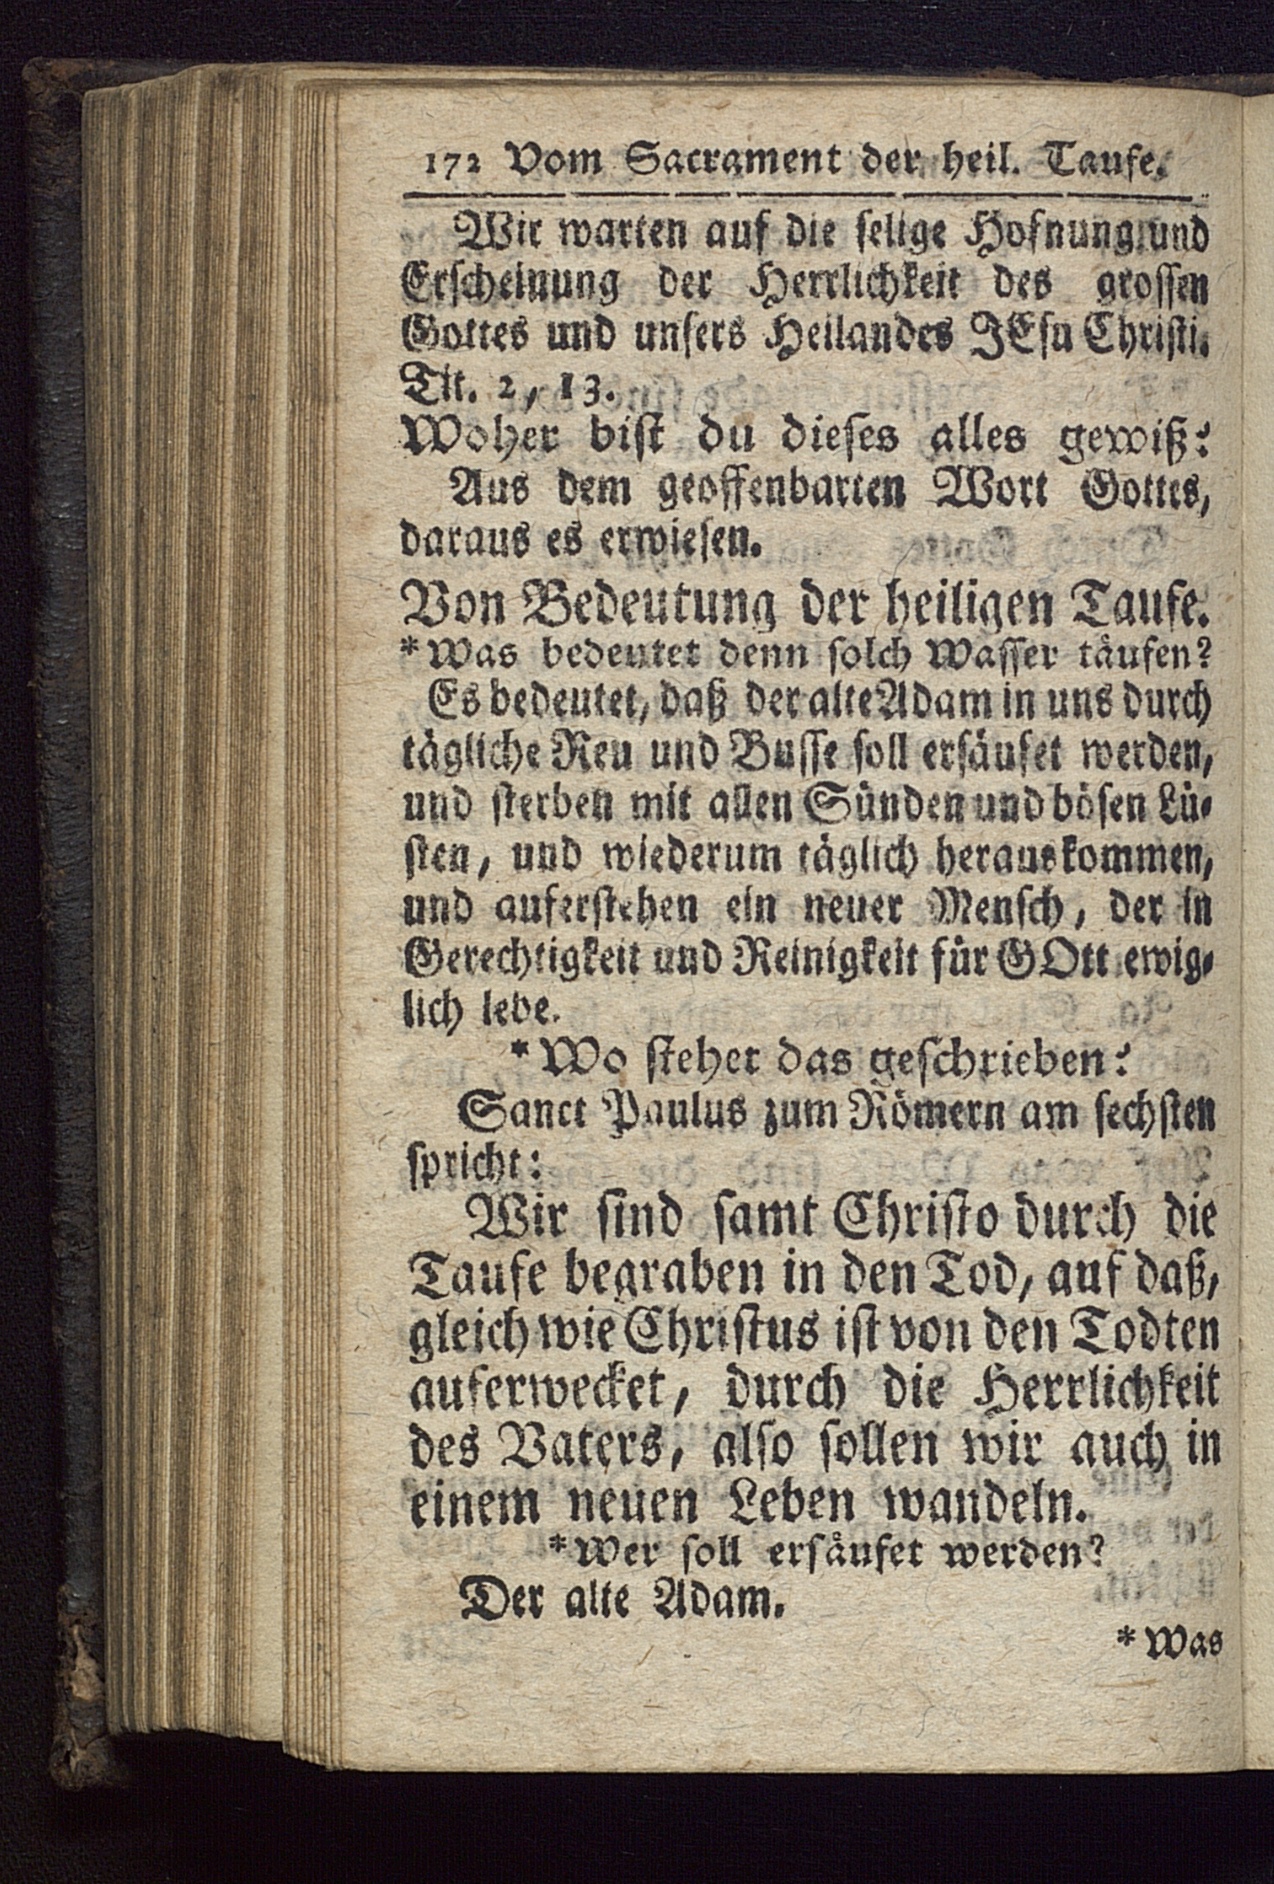 172 Vom Sacrament der heil. Taufe.
Wir warten auf die selige Hofnung und
Erscheinung der Herrlichkeit des grossen
Gottes und unsers Heilandes JEsu Christi.
Tit. 2, 13.
Woher bist du dieses alles gewiß?
Aus dem geoffenbarten Wort Gottes,
daraus es erwiesen.
Von Bedeutung der heiligen Taufe.
*Was bedeutet denn solch Wasser täufen?
Es bedeutet, daß der alte Adam in uns durch
tägliche Reu und Busse soll ersäufet werden,
und sterben mit allen Sünden und bösen Lü-
sten, und wiederum täglich herauskommen,
und auferstehen ein neuer Mensch, der in
Gerechtigkeit und Reinigkeit für GOtt ewig-
lich lebe.
*Wo stehet das geschrieben?
Sanct Paulus zum Römern am sechsten
spricht:
Wir sind samt Christo durch die
Taufe begraben in den Tod, auf daß,
gleich wie Christus ist von den Todten
auferwecket, durch die Herrlichkeit
des Vaters, also sollen wir auch in
einem neuen Leben wandeln.
*Wer soll ersäufet werden?
Der alte Adam.
*Was